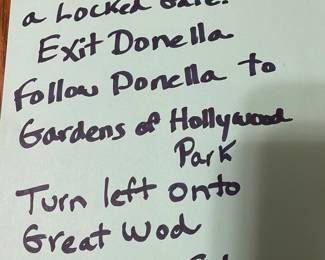 a Locked Gate.
Exit Donella
Follow Donella to
Gardens of Hollywood
Park
Turn left onto
Great Wod